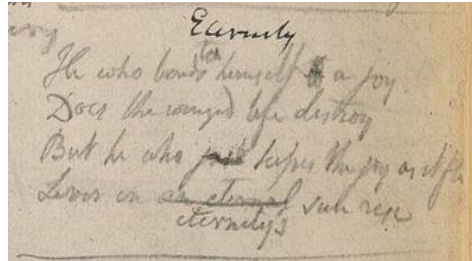 Eternity
to
He who binds himself a joy
Does the winged life destroy
But he who just kisses the joy as it flie
Lives in an eternal sun rise
eternity's